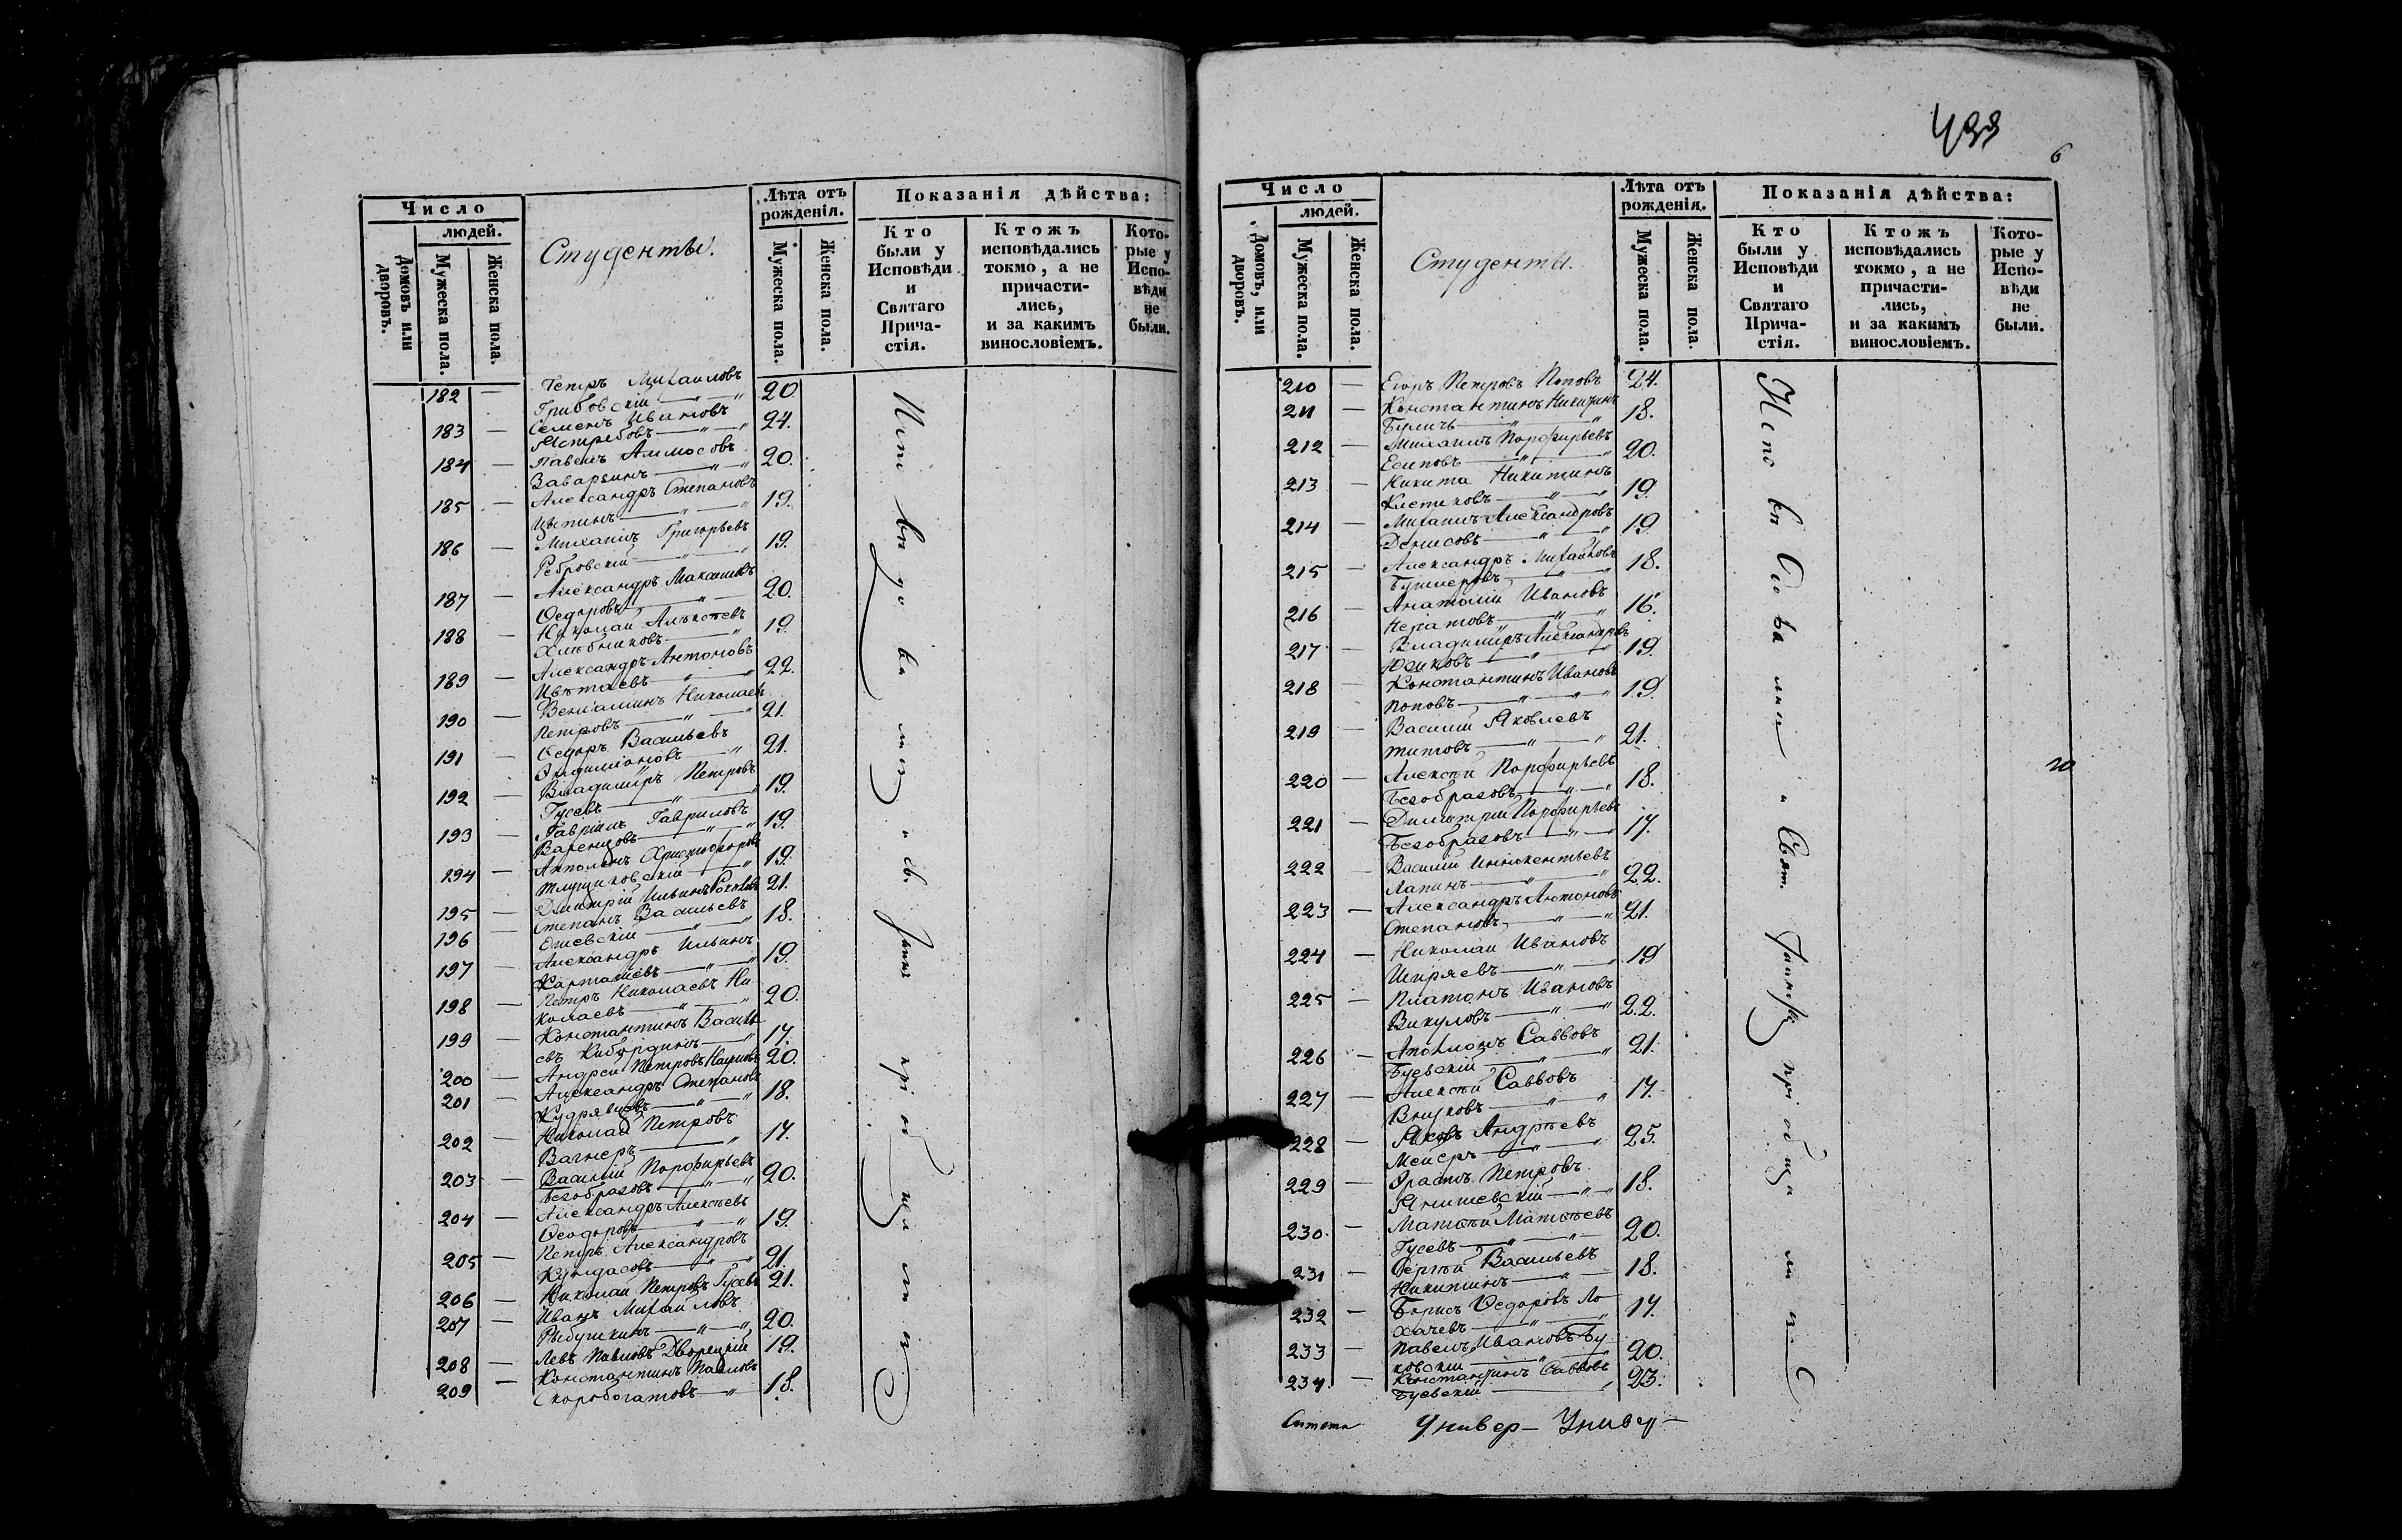 Число
людей.
Домовъ или дворовъ.
Мужеска пола.
Женска пола.
Студенты.
Лѣта отъ рожденія.
Мужеска пола.
Женска пола.
Показанія дѣйства:
Кто были у Исповѣди и Святаго Прича-стія.
Ктожъ исповѣдались токмо, а не причасти-лись, и за какимъ винословіемъ.
Кото-рые у Испо-вѣди не были.
182 — Петръ Михаиловъ
Грибовскій — " — " 20.
183 — Семенъ Ивановъ
Ястребовъ — " — " 24.
184 — Павелъ Аммосовъ
Заварзинъ — " — " 20.
185 — Александръ Степановъ
— " — " 19.
186 — Михаилъ Григорьевъ
Ребровскій — " — " 19.
187 — Александръ Максимовъ
Ѳедоровъ — " — 20.
188 — Николай Алексѣевъ
Хлѣбниковъ — " 19.
189 — Александръ Антоновъ
Цвѣтаевъ — " — " 22.
190 — Веніаминъ Николаевъ
Петровъ — " — " 21.
191 — Ѳедоръ Васильевъ
— " 21.
192 — Владиміръ Петровъ
Гусевъ — " — " 19.
193 — Гавріилъ Гавриловъ
Варенцовъ — " — " 19.
194 — Христофоровъ
— " 19.
195 — Дмитрій Ильинъ Соколовъ 21.
196 — Степанъ Васильевъ
Ешевскій — " — " 18.
197 — Александръ Ильинъ
— " — " 19.
198 — Петръ Николаевъ Ни
колаевъ — " — " 20.
199 — Константинъ Василь
евъ — " 17.
200 — Андрей Петровъ 20.
201 — Александръ Степановъ
Кудрявцевъ — " — " 18.
202 — Николай Петровъ
Вагнеръ — " 17.
203 — Василій Порфирьевъ
Безобразовъ — " — " 20.
204 — Александръ Алексѣевъ
Ѳеодоровъ — " — " 19.
205 — Петръ Александровъ
Кундасовъ — " — " 21.
206 — Николай Петровъ Гусевъ 21.
207 — Иванъ Михайловъ
Рыбушкинъ — " — " 20.
208 — Левъ Павловъ Дворецкій 19.
209 — Константинъ Павловъ
Скоробогатовъ — " 18.
и св.
433
6
Число
людей.
Домовъ, или дворовъ.
Мужеска пола.
Женска пола.
Студенты.
Лѣта отъ рожденія.
Мужеска пола.
Женска пола.
Показанія дѣйства:
Кто были у Исповѣди и Святаго Прича-стія.
Ктожъ исповѣдались токмо, а не причасти-лись, и за какимъ винословіемъ.
Кото-рые у Испо-вѣди не были.
210 — Егоръ Петровъ Поповъ 24.
211 — Константинъ Никитинъ
Буличъ — " — " 18.
212 — Михаилъ Порфирьевъ
Есиповъ — " — " 20.
213 — Никита Никитинъ
— " — " 19.
214 — Михаилъ Александровъ
Денисовъ — " — " 19.
215 — Александръ Михайловъ
Бутлеровъ — " — " 18.
216 — Анатолій Ивановъ
Нератовъ — " — " 16.
217 — Владиміръ Александровъ
Юшковъ — " — " 19.
218 — Константинъ Ивановъ
Поповъ — " — " — " 19.
219 — Василій Яковлевъ
Титовъ — " — " 21.
220 — Алексѣй Порфирьевъ
Безобразовъ — " — " 18.
221 — Димитрій Порфирьевъ
Безобразовъ — " — " 17.
222 — Василій Иннокентьевъ
Лапинъ — " — " 22.
223 — Александръ Антоновъ
Степановъ — " — " 21.
224 — Николай Ивановъ
Ширяевъ — " — " 19
225 — Платонъ Ивановъ
Викуловъ — " — " 22.
226 — Аполлонъ Саввовъ
Буевскій — " — " 21.
227 — Алексѣй Саввовъ
Внуковъ — " — " 17.
228 — Яковъ Андреевъ
Мейеръ — " — " 25.
229 — Эрастъ Петровъ
Янишевскій — " — " 18.
230. — Матвѣй Матвѣевъ
Гусевъ — " — " — 20.
231 — Сергѣй Васильевъ
Никитинъ — " — 18.
232 — Борисъ Ѳедоровъ Ло
хачевъ — " — " 17.
233 — Павелъ Ивановъ Бу
ковскій — " — " 20.
234. — Константинъ Саввовъ
Буевскій — " 23.
Исповѣдались и Свят. Таинствъ пріобщались
Универ — Универ —